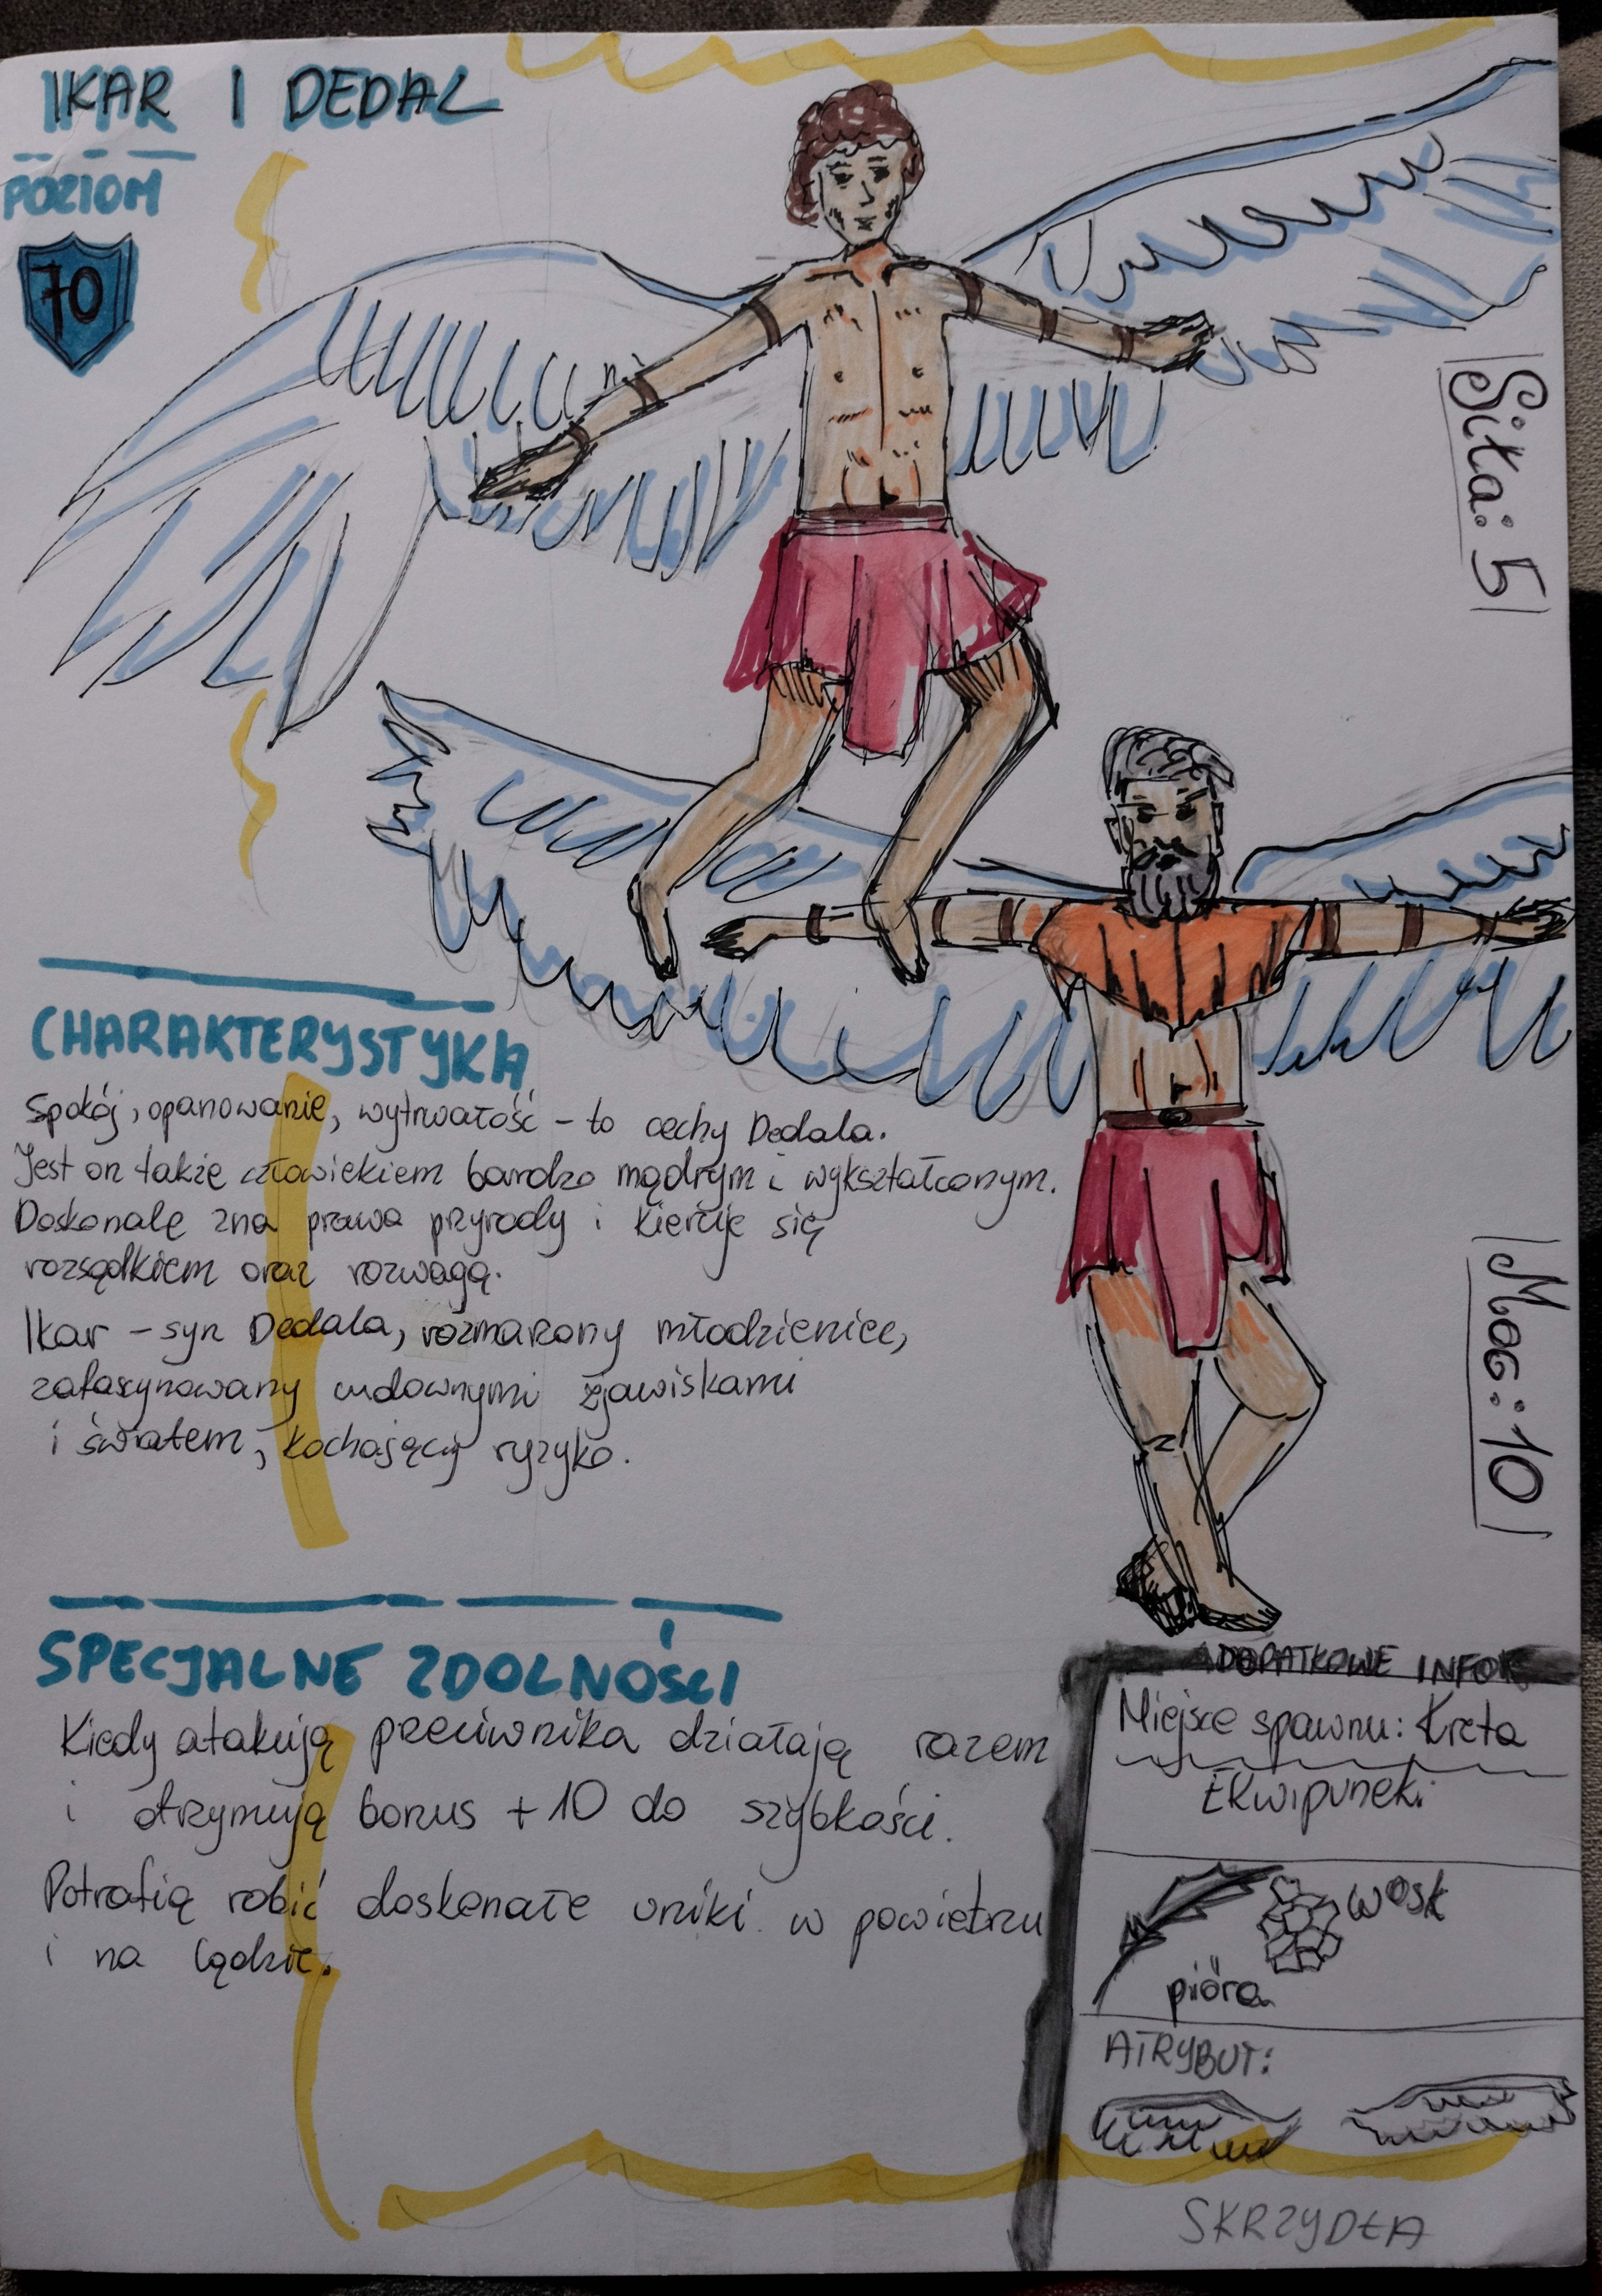 IKAR I DEDAL
POZIOM
70
Siła: 5
CHARAKTERYSTYKA
Spokój, opanowanie, wytrwałość – to cechy Dedala.
Jest on także człowiekiem bardzo mądrym i wykształconym.
Doskonalę zna prawa przyrody i kieruje się
rozsądkiem oraz rozwagą.
Ikar – syn Dedala, rozmarzony młodzieniec,
zafascynowany cudownymi zjawiskami
i światem, kochający ryzyko.
Moc: 10
SPECJALNE ZDOLNOŚCI
Kiedy atakują przeciwnika działają razem
i otrzymują bonus +10 do szybkości.
Potrafią robić doskonałe uniki w powietrzu
i na lądzie.
DODATKOWE INFO
Miejsce spawnu: Kreta
Ekwipunek:
wosk
pióra
ATRYBUT:
SKRZYDŁA